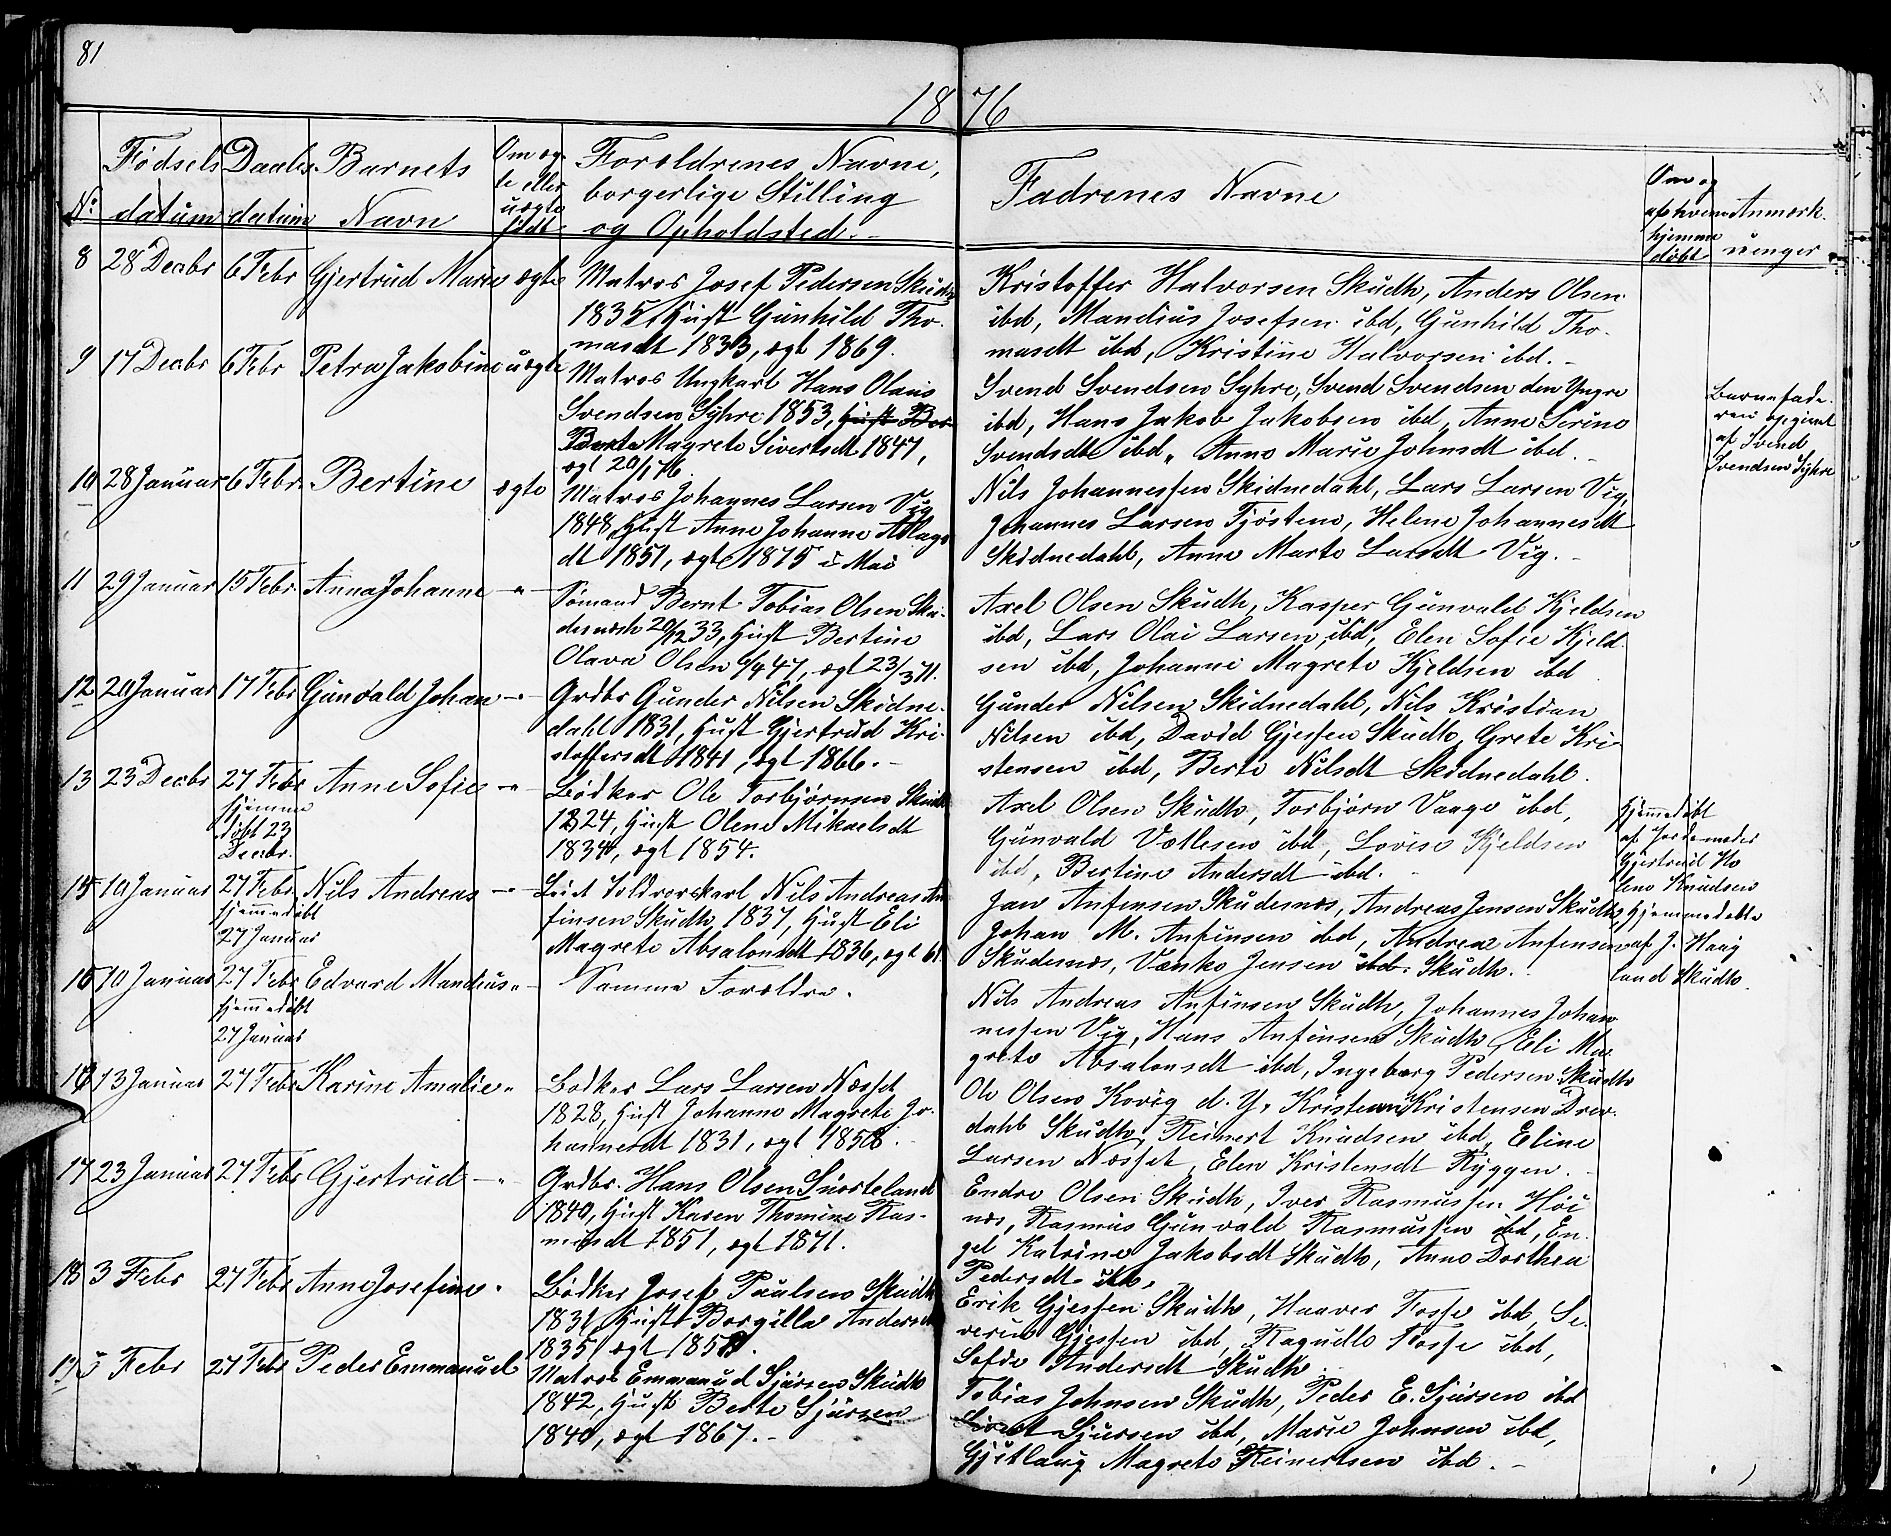 81
1876
No
Fødsels datum
Daabs datum
Barnets Navn
Om ægte eller uægte født
Forældrenes Navne, borgerlige Stilling og Opholdsted.
Fadrenes Navne
Om og af hvem hjemme døbt
Anmærkninger
8 28 Decbr 6 Febr Gjertrud Marie ægte
Matros Josef Pedersen Skudh
1835, Hust Gunhild Tho-
masdt 1833, ægt 1869.
Kristoffer Halvorsen Skudh, Anders Olsen
ibd, Mandius Josefsen ibd, Gunhild Tho-
masdt ibd, Kristine Halvorsen ibd.
9 17 Decbr 6 Febr Petra Jakobine uægte
Matros Ungkarl Hans Olaus
Svendsen Syhre 1853,
Magrete Sivertsdt 1847,
ægt 20/1 76.
Svend Svendsen Syhre, Svend Svendsen den Yngre
ibd, Hans Jakob Jakobsen ibd, Anne Serine
Svendsdt ibd, Anne Marie Johnsdt ibd.
Barnefade-
ren opgivet
af Svend
Svendsen Syhre
10 28 Januar 6 Febr. Bertine ægte
Matros Johannes Larsen Vig
1848, Hust Anne Johanne Aslags
dt 1851, ægt 1875 i Mai
Nils Johannessen Skidnedahl, Lars Larsen Vig,
Johannes Larsen Tjösteno, Helene Johannesdt
Skidnedahl, Anne Marte Larsdt Vig.
11 29 Januar 15 Febr. Anna Johanne -"-
Sømand Bernt Tobias Olsen Sku-
desnæsh 20/12 33, Hust Bertine
Olava Olsen 47, ægt 23/3 71.
Axel Olsen Skudh, Kasper Gunvald Kjeldsen
ibd, Lars Olai Larsen, ibd, Elen Sofie Kjeld-
sen ibd, Johanne Magrete Kjeldsen ibd
12 20 Januar 17 Febr Gunvald Johan -"-
Grdbr Gunder Nilsen Skidne-
dahl 1831, Hust Gjertrud Kri-
stoffersdt 1841, ægt 1866.
Gunder Nilsen Skidnedahl, Nils Kristian
Nilsen ibd, David Gjessen Skudh, Grete Kri-
stensen ibd, Berte Nilsdt Skidnedahl.
13 23 Decbr 27 Febr Anne Sofie -"-
hjemme
døbt 23
Decbr.
Bødker Ole Torbjørnsen Skudh
1824, Hust Olene Mikaelsdt
1834, ægt 1854.
Axel Olsen Skudh, Torbjørn Vaage ibd,
Gunvald Vetlesen ibd, Lovise Kjeldsen
ibd, Bertine Andersdt ibd.
Hjemmedøbt
af Jordemoder
Gjertrud Ho
lene Knudsen
15 10 Januar 27 Febr Nils Andreas -"-
hjemmedøbt
27 Januar
Toldrorskarl Nils Andreas An
finsen Skudh 1837, Hust Eli
Magrete Absalonsdt 1836, ægt 61.
Jan Anfensen Skudesnæs, Andreas Jensen Skudh,
Johan M. Anfinsen ibd, Andrea Anfensen
Skudesnæs, Venke Jensen Skudh.
Hjemmedøbte
af J. Haug
land Skudh.
16 10 Januar 27 Febr Edvard Mandius -"-
hjemmedøbt
27 Januar
Samme Forældre.
Nils Andreas Anfinsen Skudh, Johannes Johan
nessen Vig, Hans Anfinsen Skudh, Eli Ma-
grete Absalonsdt ibd, Ingeborg Pedersen Skudh
16 13 Januar 27 Febr Karine Amalie "
Bødker Lars Larsen Næsset
1828, Hust Johanne Magrete Jo-
hannesdt 1831, ægt 1858.
Ole Olsen Kovig d. Y, Kristen Kristensen Drer-
dahl Skudh, Reinert Knudsen ibd, Eline
Larsen Næsset, Elen Kristensdt Ryggen.
17 23 Januar 27 Febr Gjertrud -"-
Grdbr. Hans Olsen Snorteland
1840, Hust Karen Thomine Ras-
musdt 1851, ægt 1871.
Endre Olsen Skudh, Iver Rasmussen Høi
næs, Rasmus Gunvald Rasmussen ibd, En-
gel Katrine Jakobsdt Skudh, Anne Dorthea
Pedersdt
18 3 Febr 27 Febr Anne Josefine "
Bødker Josef Paulsen Skudh
1831, Hust Borgilla Andersdt
1835, ægt
Erik Gjessen Skudh, Haaver Fosse ibd, Se-
verin Gjessen ibd, Ragnele Fosse ibd,
Sofie Andersdt Skudh.
19 5 Febr 27 Febr Peder Emmanuel
Matros Emmanuel Sjursen Skudh
1842, Hust Berte Sjursen
1840, ægt 1867.
Tobias Johnsen Skudh, Peder E. Sjursen ibd
Sjursen ibd, Marie Johnsen ibd,
Gjetlaug Magrete Reinertsen ibd.